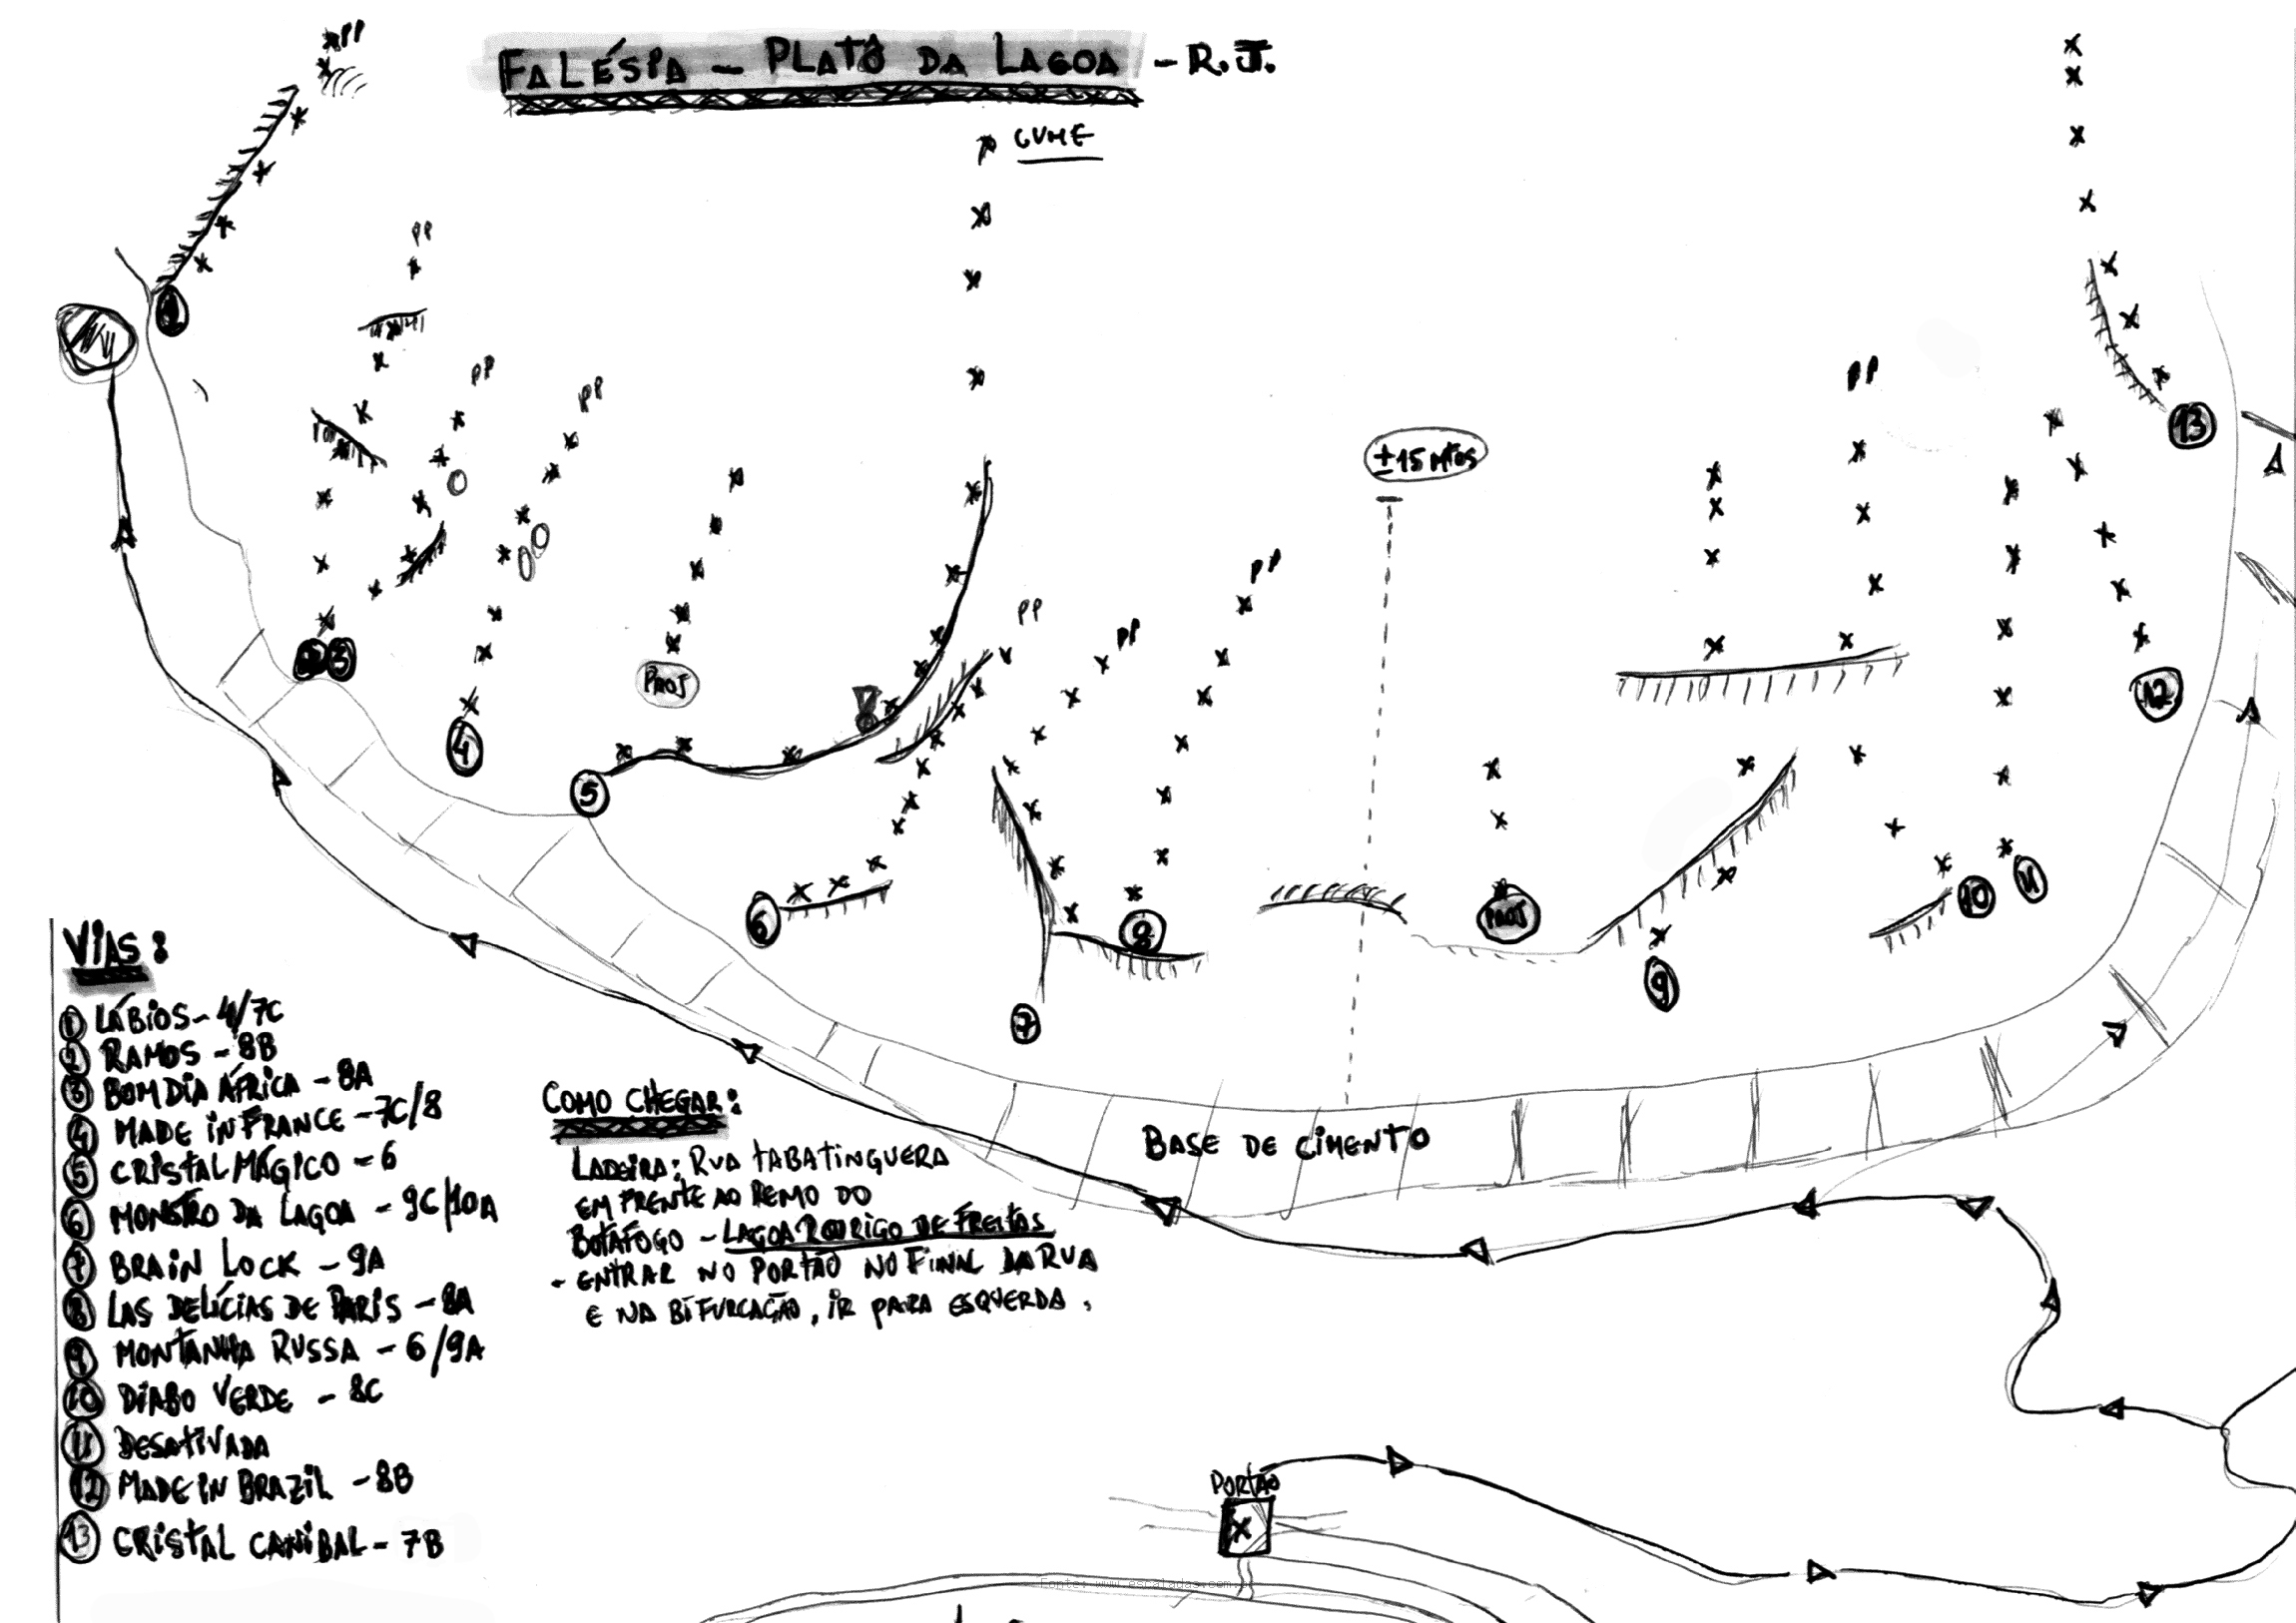 FALÉSIA - PLATÔ DA LAGOA - R.J.
PP
CUME
PP
PP
PP
PP
±15 MTOS
PP
PP
PP
PROJ
PROJ
1
2 3
4
5
6
7
8
9
10
11
12
13
VIAS:
1 LÁBIOS - 4/7C
2 RAMOS - 8B
3 BOM DIA ÁFRICA - 8A
4 MADE IN FRANCE - 7C/8
5 CRISTAL MÁGICO - 6
6 MONSTRO DA LAGOA - 9C/10A
7 BRAIN LOCK - 9A
8 LAS DELÍCIAS DE PARIS - 8A
9 MONTANHA RUSSA - 6/9A
10 DIABO VERDE - 8C
11 DESATIVADA
12 MADE IN BRAZIL - 8B
13 CRISTAL CANIBAL - 7B
COMO CHEGAR:
LADEIRA: RUA TABATINGUERA
EM FRENTE AO REMO DO
BOTAFOGO - LAGOA RODRIGO DE FREITAS
- ENTRAR NO PORTÃO NO FINAL DA RUA
E NA BIFURCAÇÃO, IR PARA ESQUERDA.
BASE DE CIMENTO
PORTÃO
Fonte: www.escaladas.com